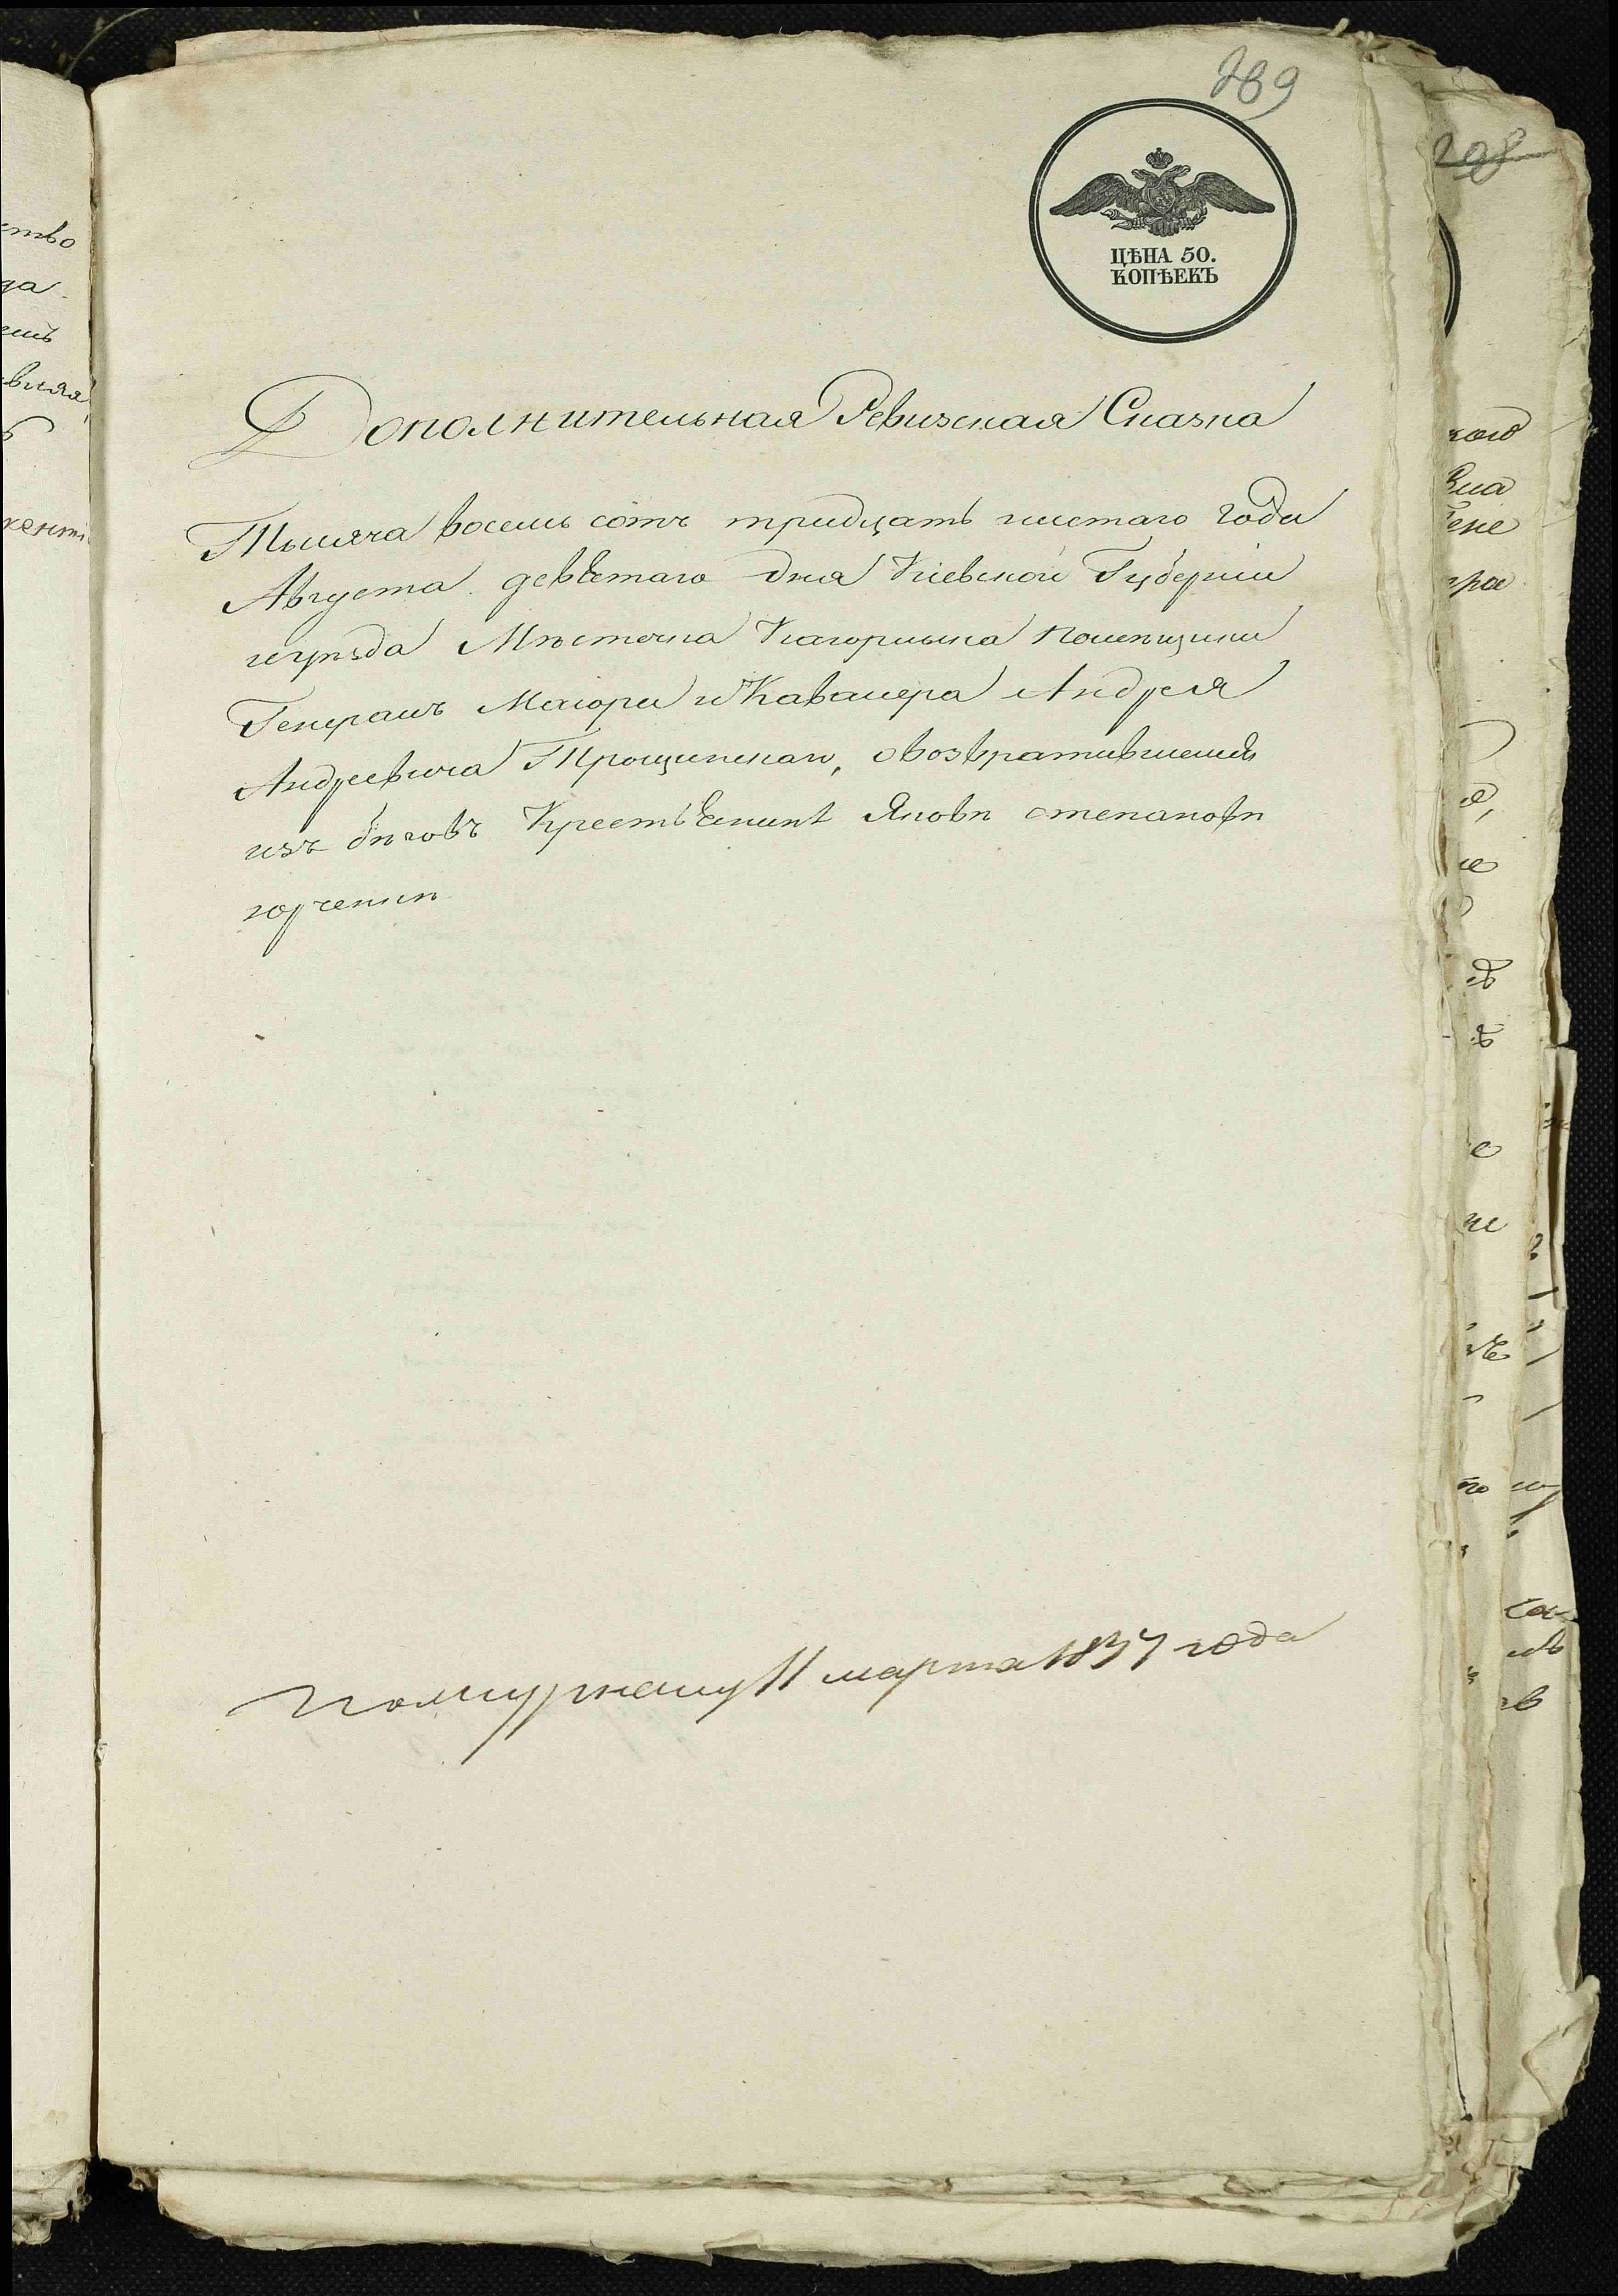 289
ЦѢНА 50.
КОПѢЕКЪ
Дополнительная Ревизская Сказка
Тысяча восемь сотъ тридцать шестаго года
Августа девѣтаго дня Кіевской Губерніи
иуѣзда Мѣстечка Кагорлыка Помещика
Генералъ Маіора и Кавалера Андрея
Андреевича Трощинскаго, овозвратившемся
изъ бѣговъ Крестьѣнинѣ Яковѣ степановѣ
11 марта 1837 года
298
ство
да